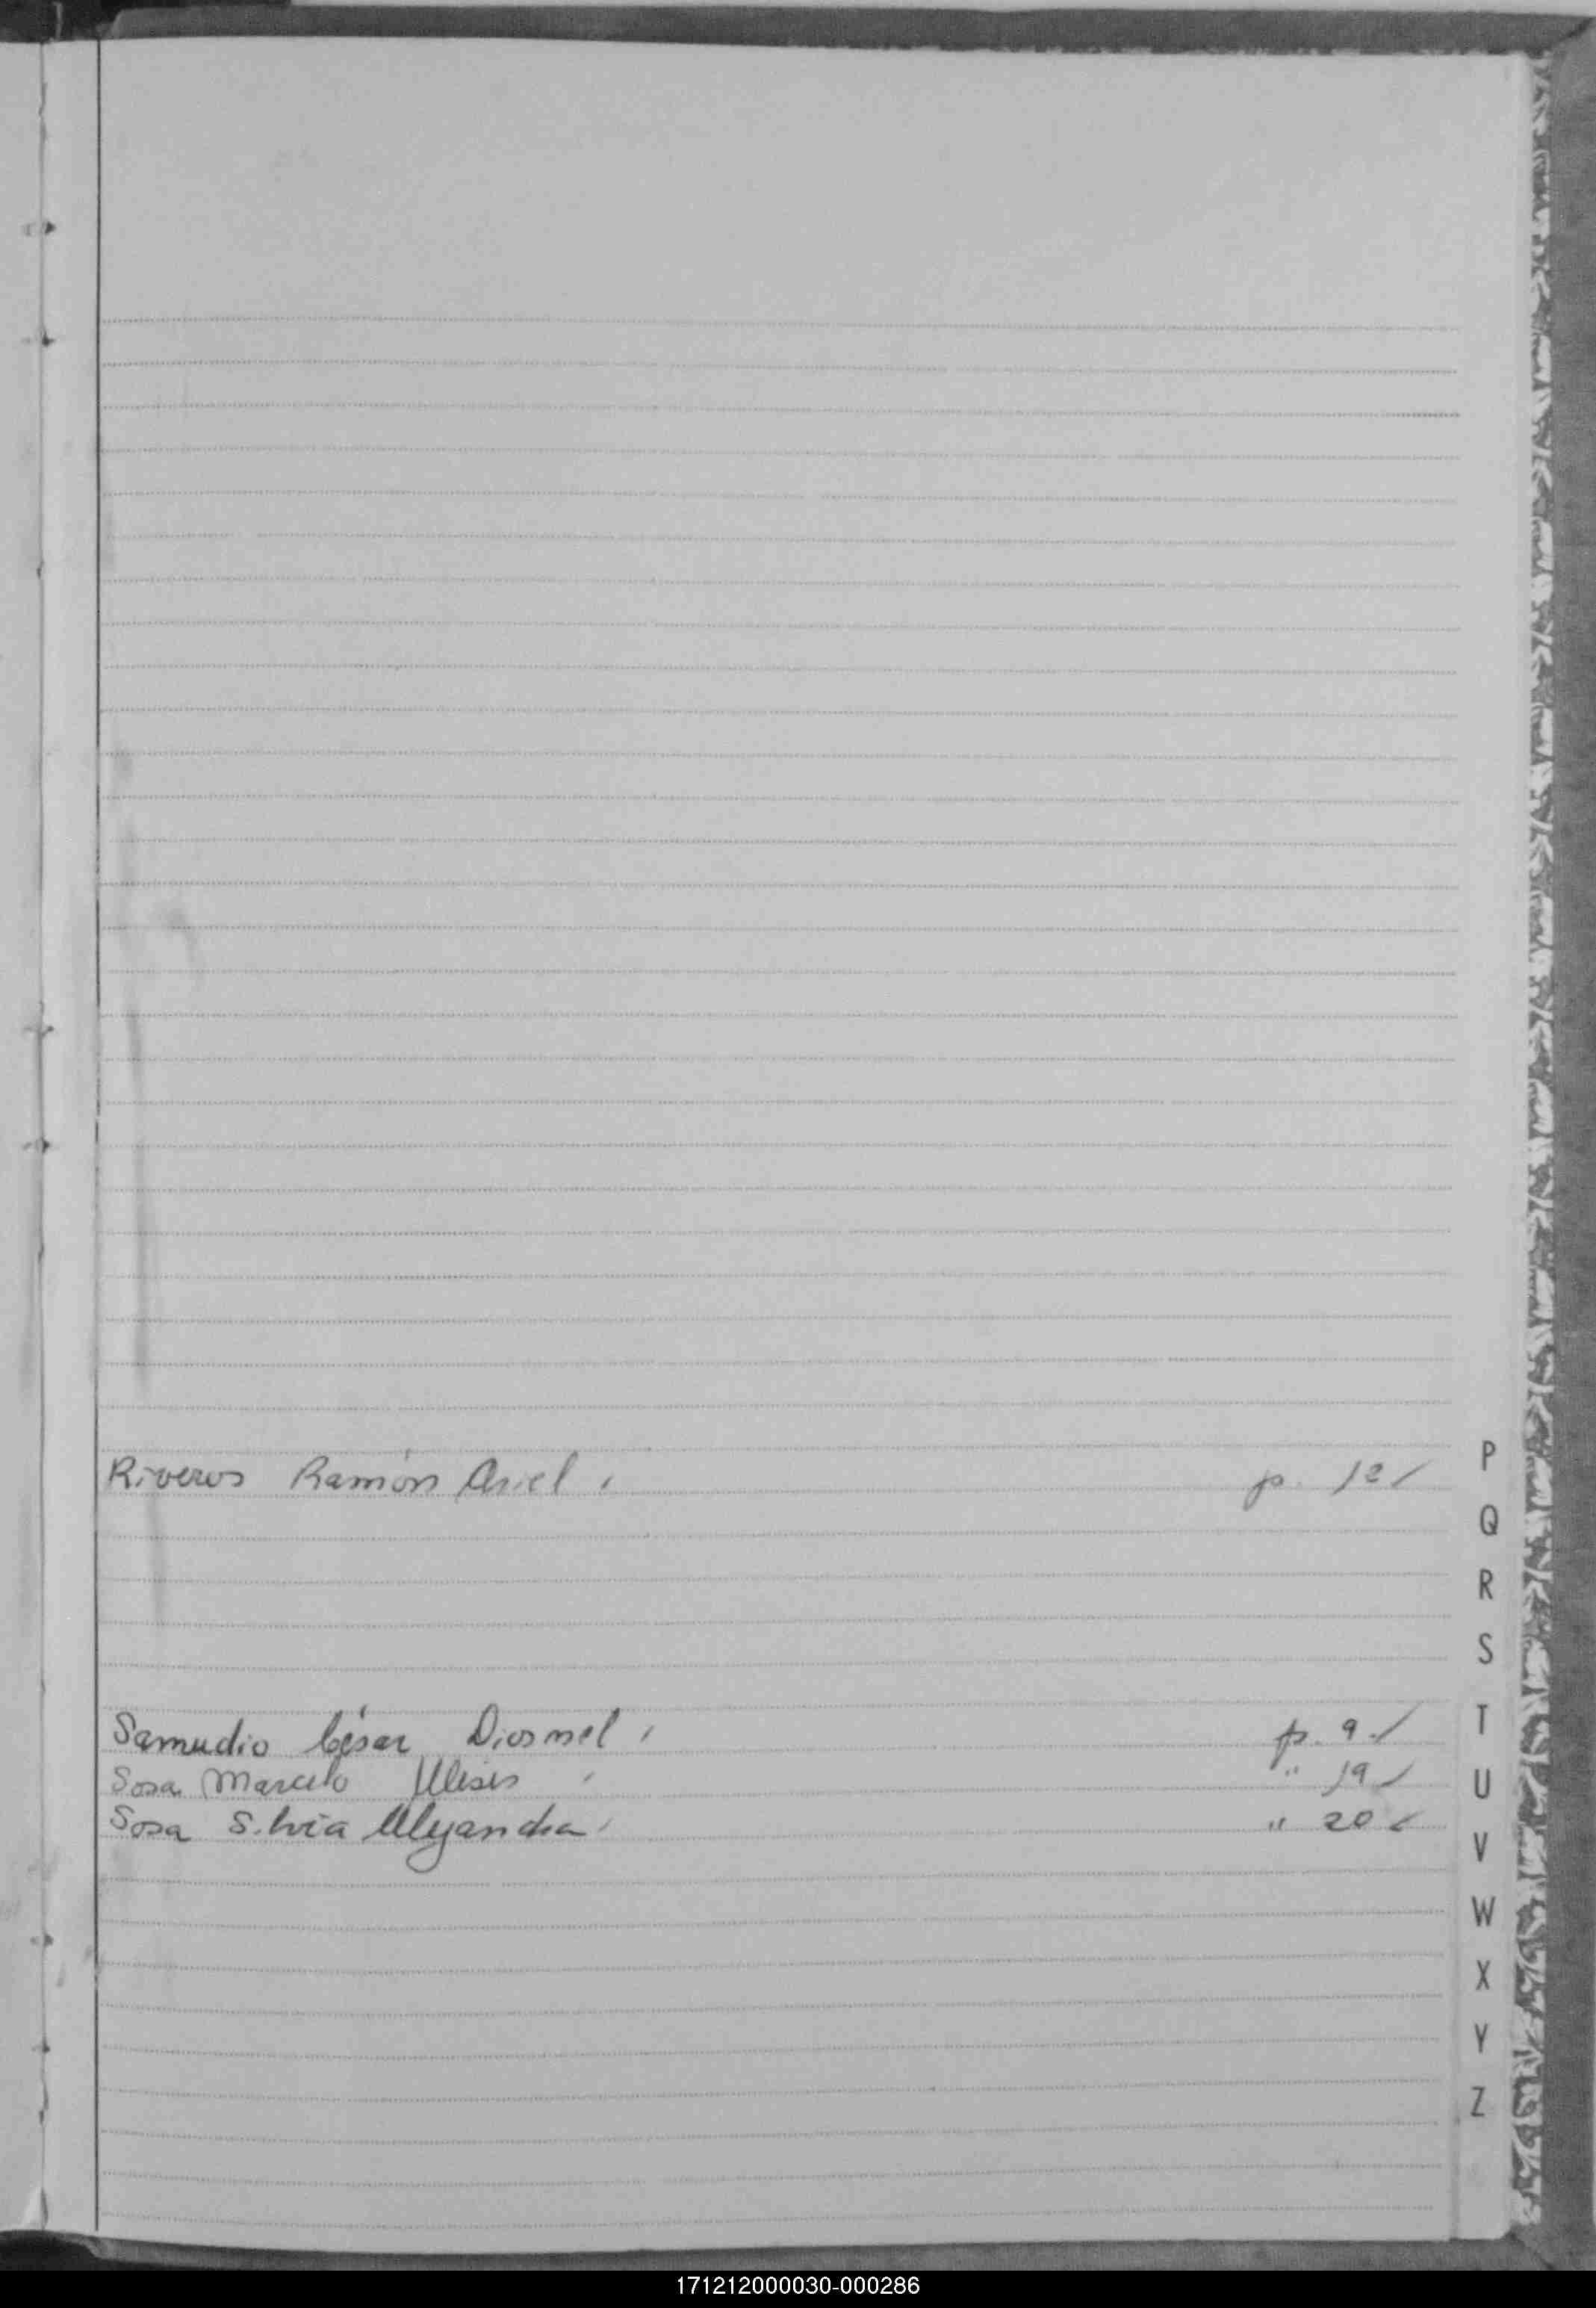 Riveros Ramón Ariel, p. 12 /
P
Q
R
S
Samudio César Diosnel, p. 9. /
T
Sosa Marcelo Ulises , " 19 /
U
Sosa Silvia Alejandra, " 20 /
V
W
X
Y
Z
171212000030-000286